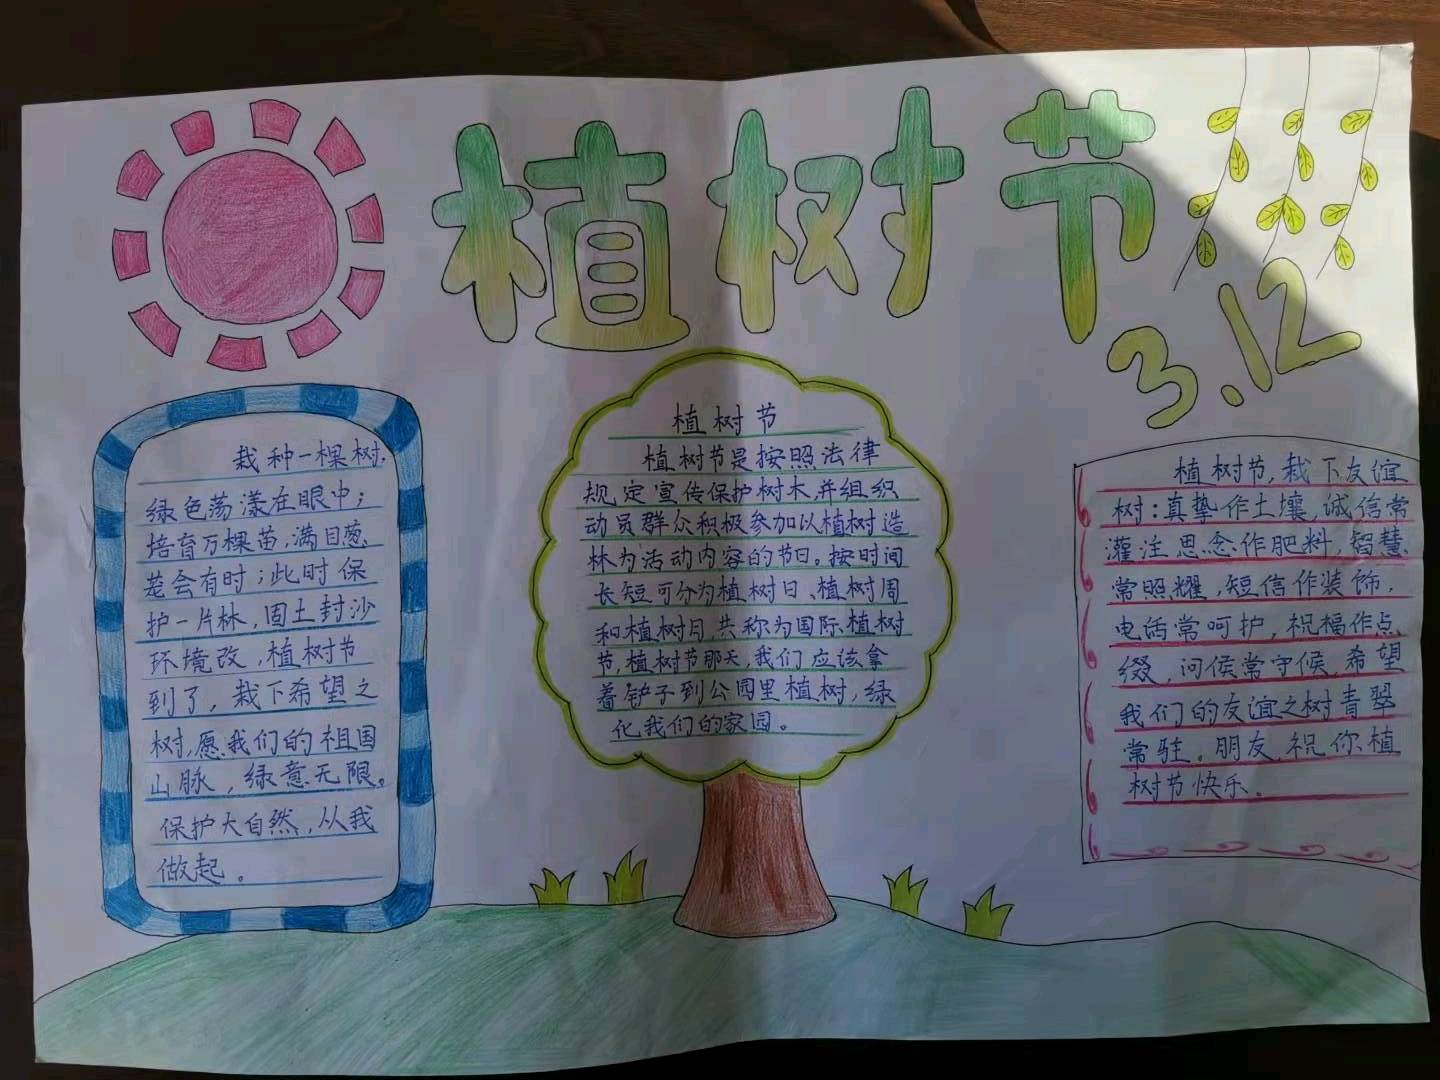 植树节
3.12
栽种一棵树,
绿色荡漾在眼中;
培育万棵苗,满目葱
茏会有时;此时保
护一片林,固土封沙
环境改,植树节
到了,栽下希望之
树,愿我们的祖国
山脉,绿意无限。
保护大自然,从我
做起。
植树节
植树节是按照法律
规定宣传保护树木,并组织
动员群众积极参加以植树造
林为活动内容的节日。按时间
长短可分为植树日、植树周
和植树月,共称为国际植树
节,植树节那天,我们应该拿
着铲子到公园里植树,绿
化我们的家园。
植树节,栽下友谊
树:真挚作土壤,诚信常
灌注思念作肥料,智慧
常照耀,短信作装饰,
电话常呵护,祝福作点
缀,问候常守候,希望
我们的友谊之树青翠
常驻。朋友,祝你植
树节快乐。